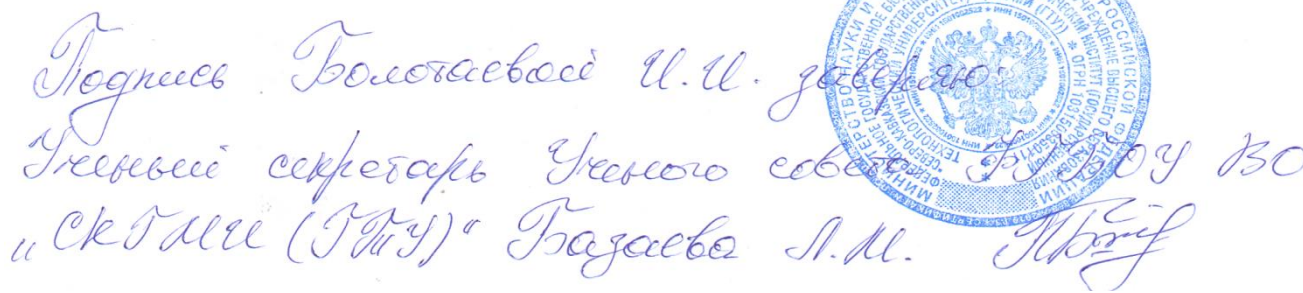 Подпись Болотаевой И.И. заверяю:
Ученый секретарь Ученого совета ФГБОУ ВО
„СКГМИ (ГТУ)“ Базаева Л.М.